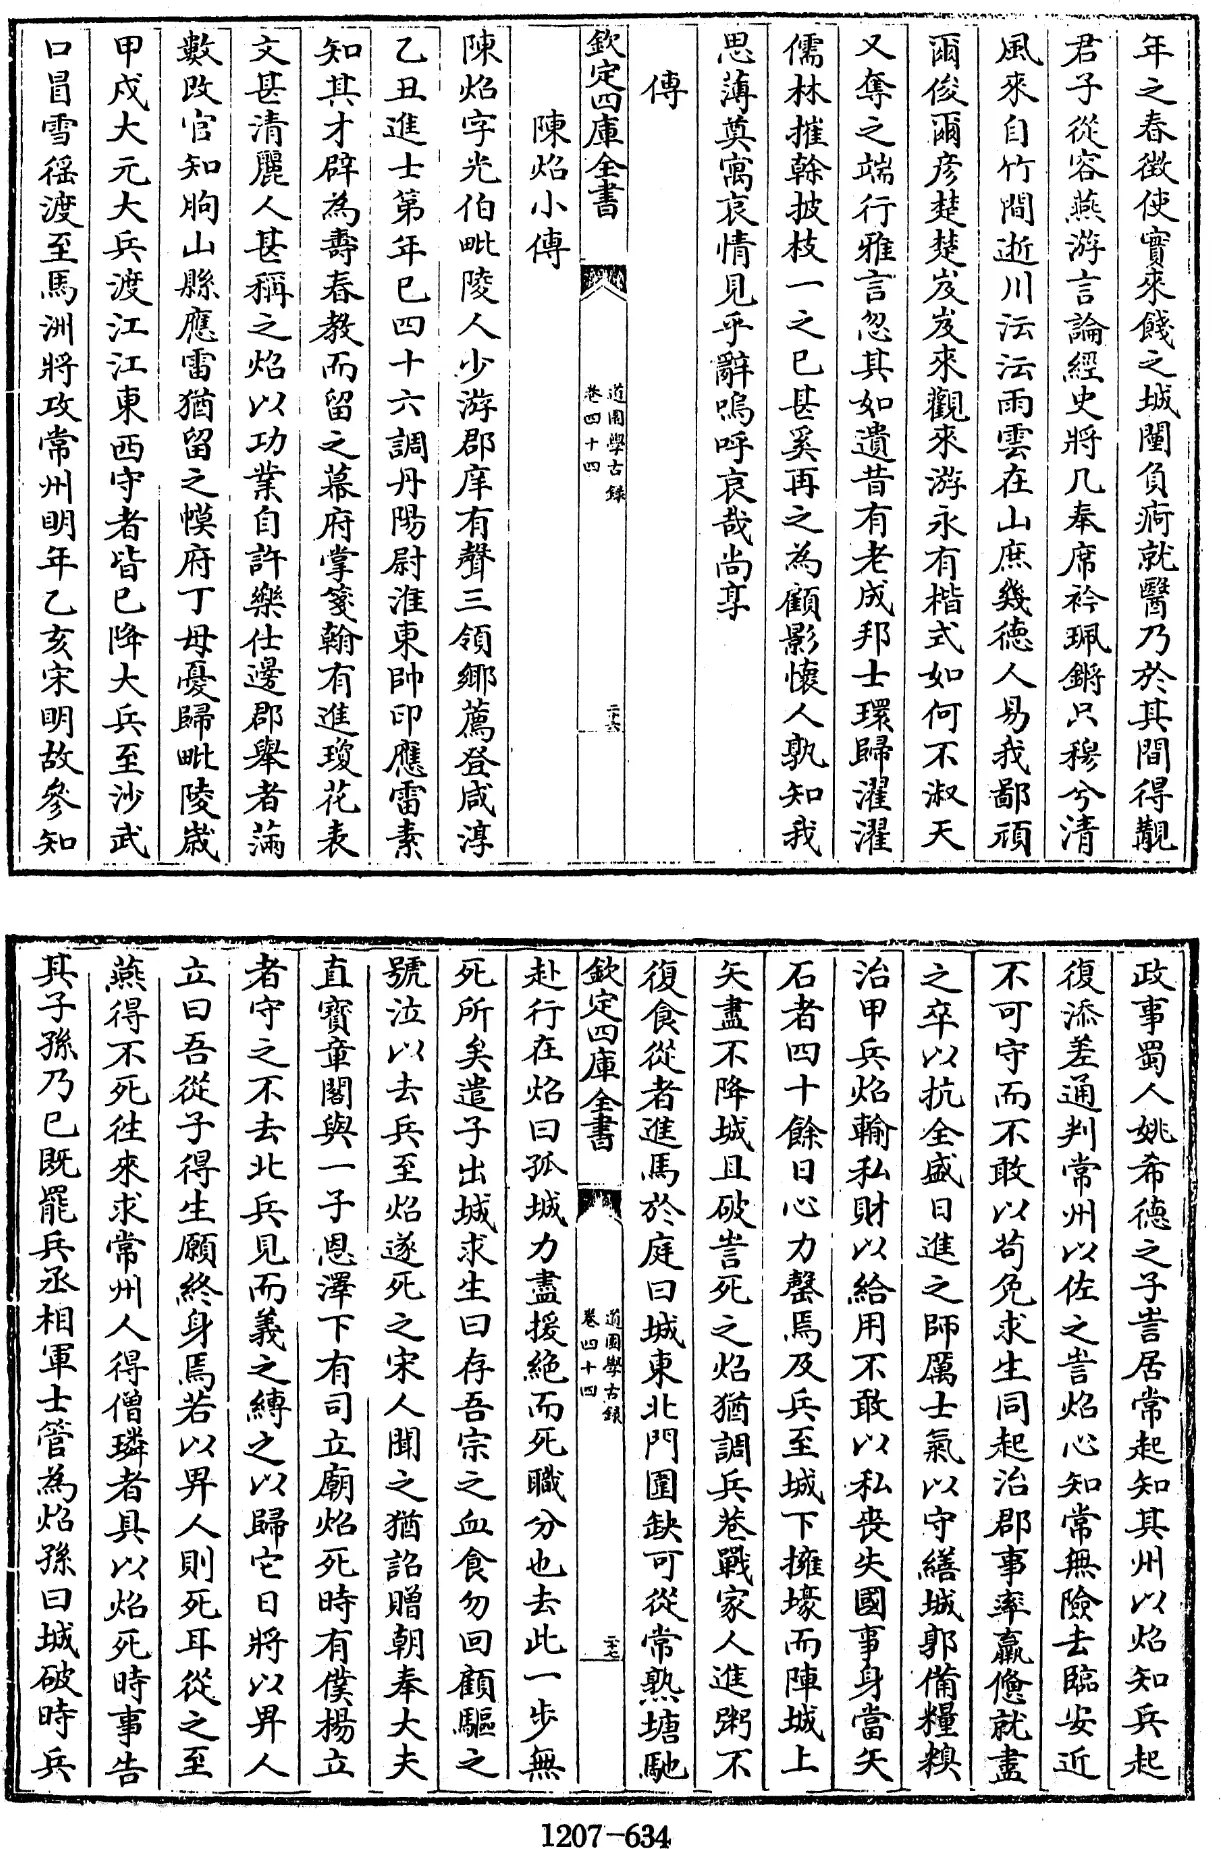 年之春徴使實來餞之城闉負痾就醫乃於其間得覯
君子從容燕游言論經史將几奉席衿珮鏘只穆兮清
風來自竹間逝川沄沄雨雲在山庶幾德人易我鄙頑
爾俊爾彦楚楚岌岌來觀來游永有楷式如何不淑天
又奪之端行雅言忽其如遺昔有老成邦士環歸濯濯
儒林摧榦披枝一之已甚奚再之為顧影懷人孰知我
思薄奠寓哀情見乎辭嗚呼哀哉尚享
傳
欽定四庫全書
道園學古録
卷四十四
二十六
陳焰小傳
陳焰字光伯毗陵人少游郡庠有聲三領鄉薦登咸淳
乙丑進士第年已四十六調丹陽尉淮東帥印應雷素
知其才辟為壽春教而留之幕府掌箋翰有進瓊花表
文甚清麗人甚稱之焰以功業自許樂仕邊郡舉者滿
數改官知朐山縣應雷猶留之幙府丁母憂歸毗陵嵗
甲戍大元大兵渡江江東西守者皆已降大兵至沙武
口冒雪徑渡至馬洲將攻常州明年乙亥宋明故參知
政事蜀人姚希德之子訔居常起知其州以焰知兵起
復添差通判常州以佐之訔焰心知常無險去臨安近
不可守而不敢以茍免求生同起治郡事率羸憊就盡
之卒以抗全盛日進之師厲士氣以守繕城郭備糧糗
治甲兵焰輸私財以給用不敢以私喪失國事身當矢
石者四十餘日心力罄焉及兵至城下擁壕而陣城上
矢盡不降城且破訔死之焰猶調兵巷戰家人進粥不
復食從者進馬於庭曰城東北門圍缺可從常熟塘馳
欽定四庫全書
道園學古録
卷四十四
二十七
赴行在焰曰孤城力盡援絶而死職分也去此一步無
死所矣遣子出城求生曰存吾宗之血食勿回顧驅之
號泣以去兵至焰遂死之宋人聞之猶詔贈朝奉大夫
直寳章閣與一子恩澤下有司立廟焰死時有僕楊立
者守之不去北兵見而義之縛之以歸它日將以畀人
立曰吾從子得生願終身焉若以畀人則死耳從之至
燕得不死徃來求常州人得僧璘者具以焰死時事告
其子孫乃已既罷兵丞相軍士管為焰孫曰城破時兵
1207-634